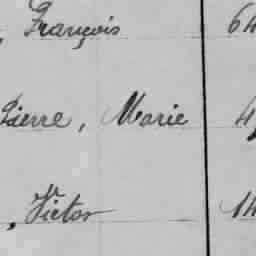 , François 64
Pierre, Marie 4
, Victor 14